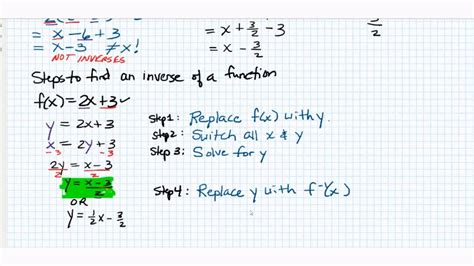 = x - 6 + 3
= x - 3 ≠ x!
NOT INVERSES
= x + 3/2 - 3
= x - 3/2
2
Steps to find an inverse of a function
f(x) = 2x + 3 ✓
y = 2x + 3
x = 2y + 3
-3 -3
2y = x - 3
2 2
y = x - 3 / 2
OR
y = 1/2 x - 3/2
Step 1: Replace f(x) with y.
Step 2: Switch all x & y
Step 3: Solve for y
Step 4: Replace y with f⁻¹(x)